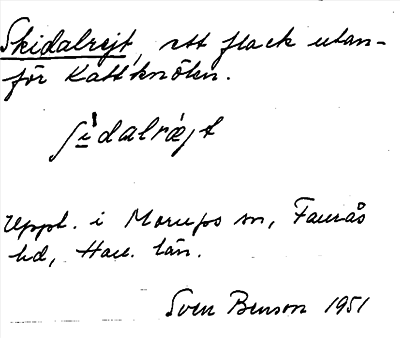 Skidalrejt, ett flack utan-
för Kattknölen.
ʃi̱dalræjt
Uppt. i Morups sn, Faurås
hd, Hall. län.
Sven Benson 1951